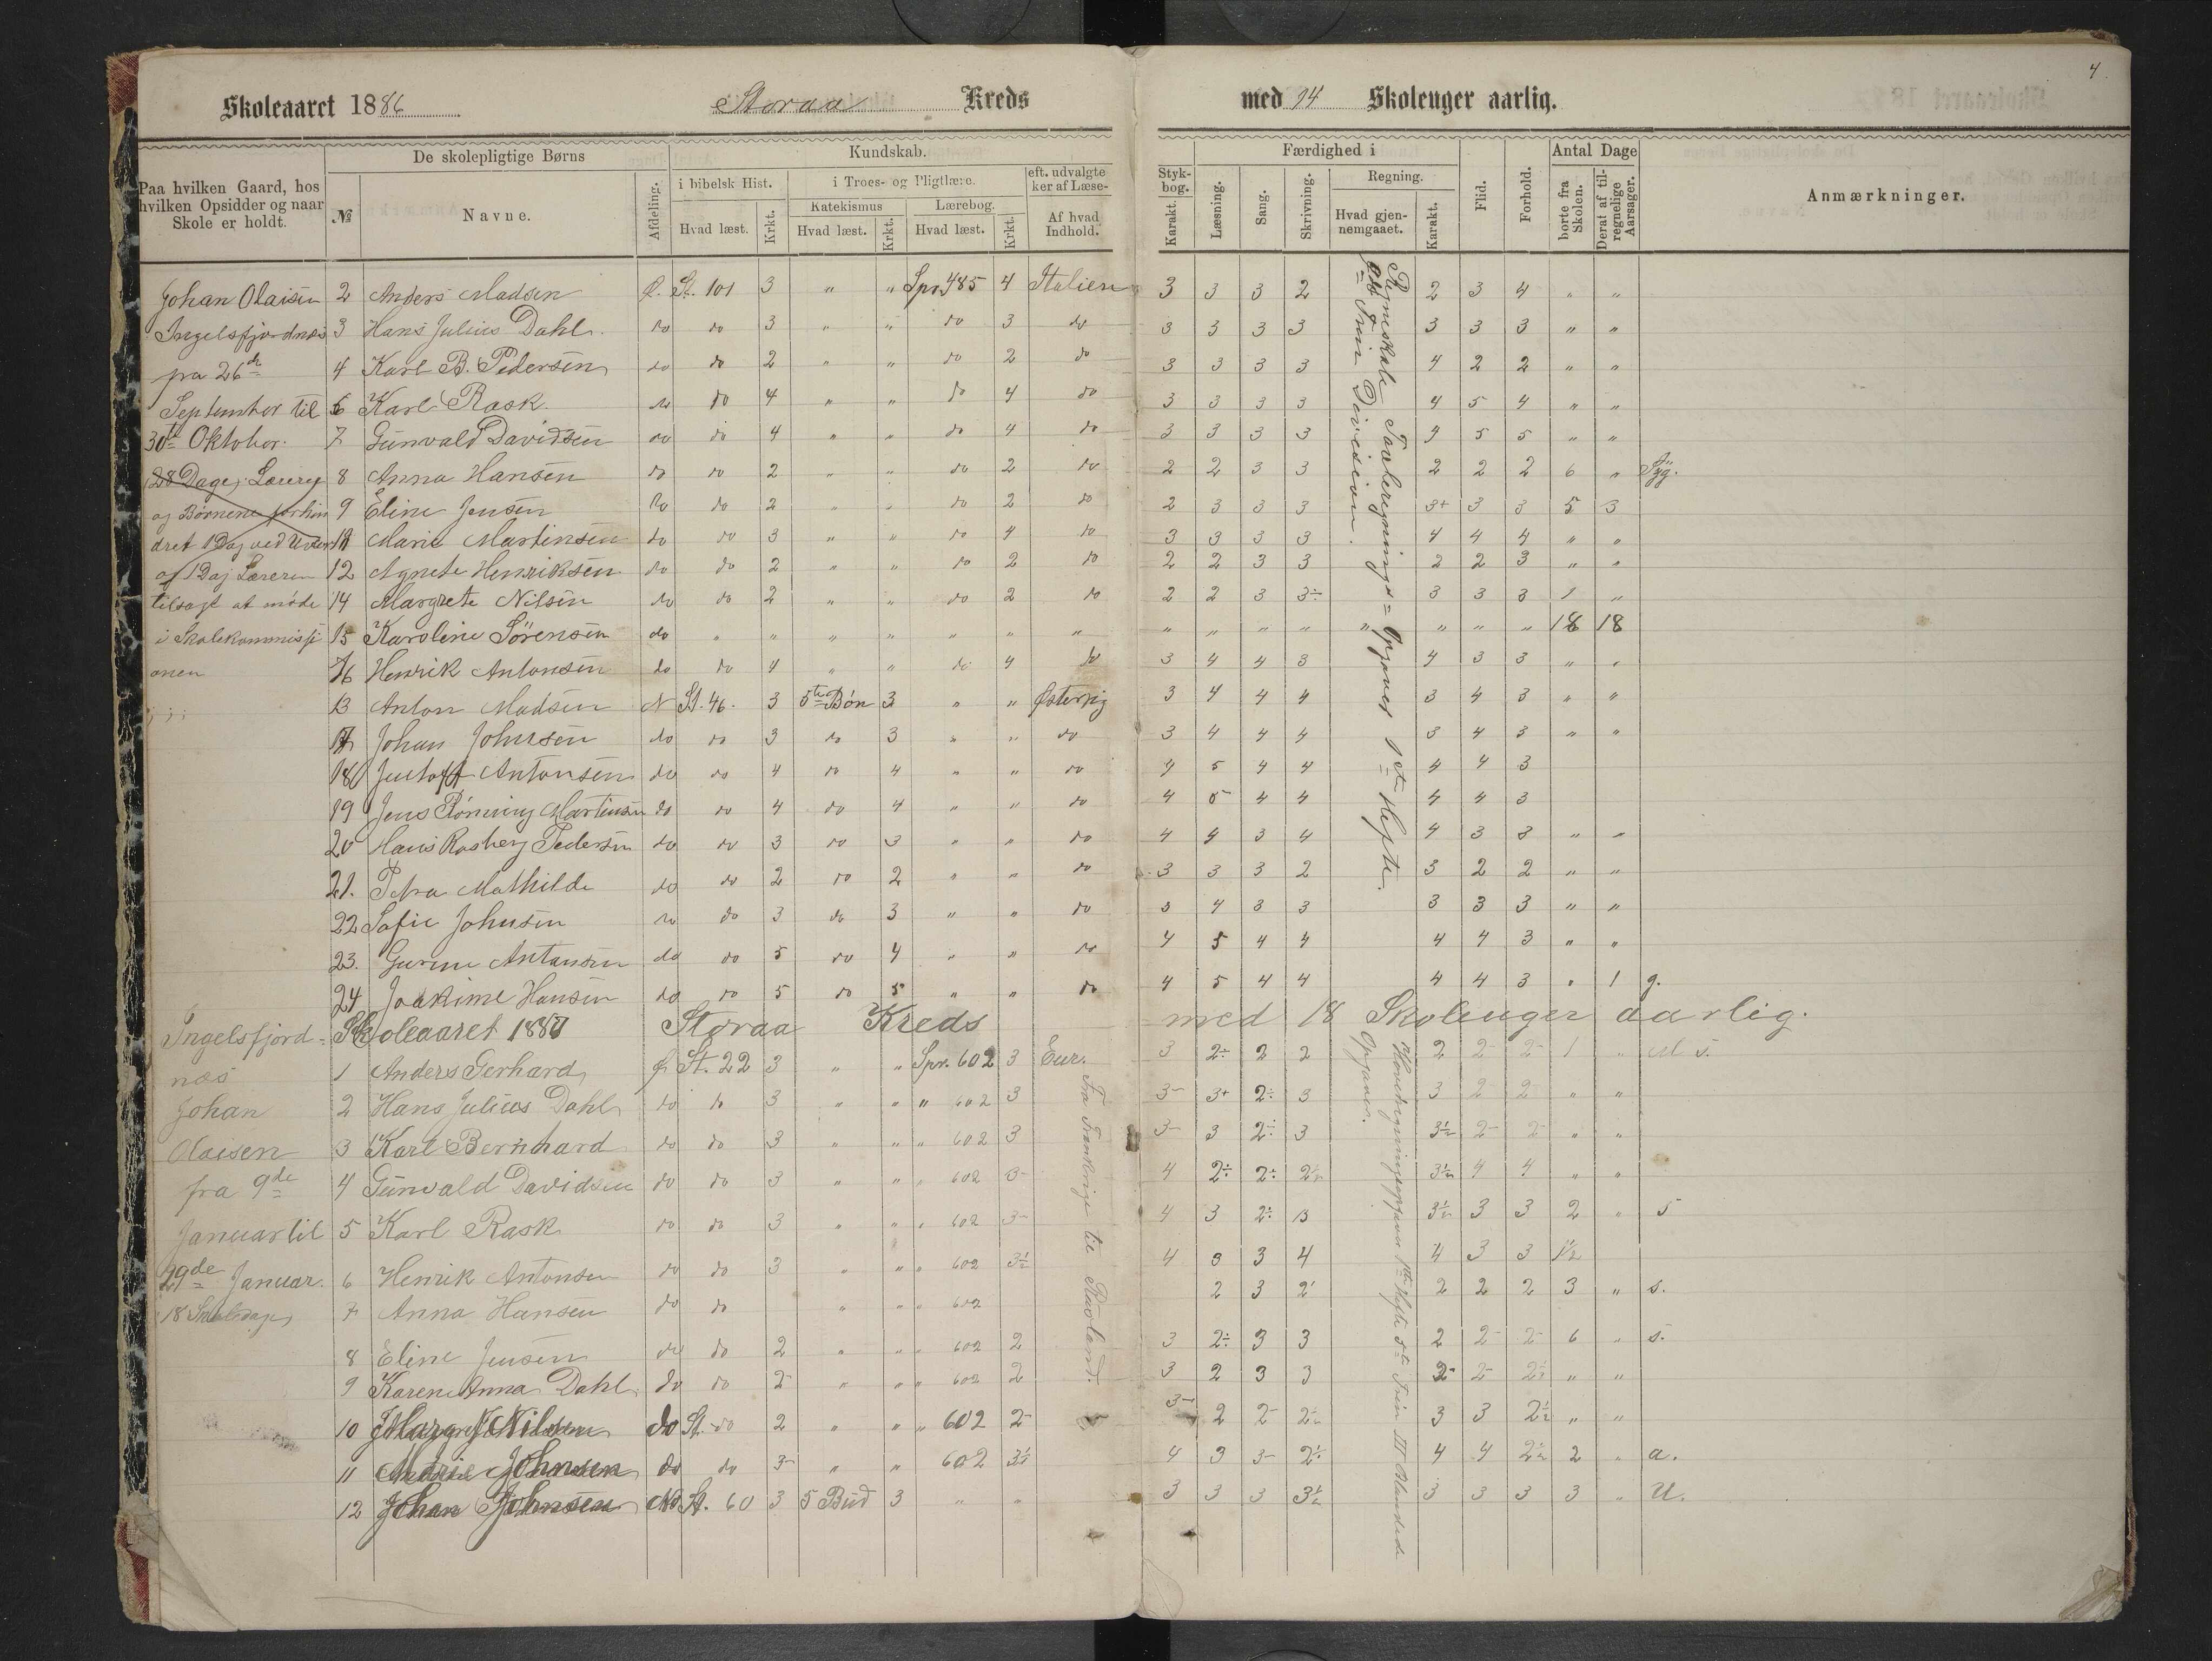 4.
Skoleaaret 1886 Storaa Kreds med 14 Skoleuger aarlig.
Paa hvilken Gaard, hos hvilken Opsidder og naar Skole er holdt.
De skolepligtige Børns
№ Navne. Afdeling.
Kundskab.
i bibelsk Hist. Hvad læst. Krkt.
i Troes- og Pligtlære.
Katekismus Hvad læst. Krkt.
Lærebog. Hvad læst. Krkt.
eft. udvalgte
ker af Læse-
Af hvad Indhold.
Styk-
bog.
Karakt.
Færdighed i
Læsning. Sang. Skrivning.
Regning.
Hvad gjen-
nemgaaet. Karakt.
Flid. Forhold.
Antal Dage
borte fra Skolen. Deraf af til-
regnelige Aarsager.
Anmærkninger.
Johan Olaisen 2 Anders Madsen St. 101 3 " " Spr. 485 4 Italien 3 3 3 2 2 3 4 " "
Ingelsfjordnæs 3 Hans Julius Dahl do do 3 " " do 3 do 3 3 3 3 3 3 3 " "
fra 26de 4 Karl B. Pedersen do do 2 " " do 2 do 3 3 3 3 4 2 2 " "
September til 6 Karl Rask do do 4 " " do 4 do 3 3 3 3 4 5 4 " "
30te Oktober. 7 Gunvald Davidsen do do 4 " " do 4 do 3 3 3 3 4 5 5 " "
28 Dage, Lærer 8 Anna Hansen do do 2 " " do 2 do 2 2 3 3 2 2 2 6 " Syg.
og Børnene forhin 9 Eline Jensen do do 2 " " do 2 do 2 3 3 3 3+ 3 3 5 3
dret 1 Dag ved 11 Marie Martinsen do do 3 " " do 4 do 3 3 3 3 4 4 4 " "
og 1 Dag Læreren 12 Agnete Henriksen do do 2 " " do 2 do 2 2 3 3 2 2 3 " "
tilsagt at møde 14 Margrete Nilsen do do 2 " " do 2 do 2 2 3 3÷ 3 3 3 1 "
i Skolekommissi 15 Karoline Sørensen do " " " " " " " " " " " " " " " 18 18
onen 16 Henrik Antonsen do do 4 " " do 4 do 3 4 4 3 4 3 3 " "
13 Anton Madsen N St. 46. 3 5te Bøn 3 " " Østerrig 3 4 4 4 3 4 3 " "
17 Johan Johnsen do do 3 do 3 " " do 3 4 4 4 3 4 3 " "
18 Antonsen do do 4 do 4 " " do 4 5 4 4 4 4 3
19 Jens Rønning Martinsen do do 4 do 4 " " do 4 5 4 4 4 4 3
20 Hans Rasberg Pedersen do do 3 do 3 " " do 4 4 3 4 4 3 3 " "
21. Petra Mathilde do do 2 do 2 " " do 3 3 3 2 3 2 2 " "
22 Sofie Johnsen do do 3 do 3 " " do 3 4 3 3 3 3 3 " "
23. Gurine Antonsen do do 5 do 4 " " do 4 5 4 4 4 4 3 " "
24 Joakime Hansen do do 5 do 5 " " do 4 5 4 4 4 4 3 " 1 g.
Regneskole Tavleregnings= Opgaver 1ste Hefte.
Trin Division.
Skoleaaret 1887 Storaa Kreds med 18 Skoleuger aarlig.
Ingelsfjord-
næs 1 Anders Gerhard Ø St. 22 3 " " Spr. 602 3 Eur. 3 2÷ 2 2 2 2- 2- 1 "
Johan 2 Hans Julius Dahl do do 3 " " " 602 3 3- 3+ 2÷ 3 3 2- 2- " "
Olaisen 3 Karl Bernhard do do 3 " " " 602 3 3- 3 2÷ 3 3½ 2- 2- " "
fra 9de 4 Gunvald Davidsen do do 3 " " " 602 3- 4 2÷ 2÷ 2½ 3½ 4 4 " "
Januar til 5 Karl Rask do do 3 " " " 602 3- 4 3 2÷ 3 3½ 3 3 2 " s
29de Januar. 6 Henrik Antonsen do do 3 " " " 602 3½ 4 3 3 4 4 3 3 1½
18 Skoledage 7 Anna Hansen do do " " " 602 2 3 2 2 2 2 3 " s.
8 Eline Jensen do do 2 " " " 602 2 3 2÷ 3 3 2 2- 2- 6 " s.
9 Karen Anna Dahl do do 2- " " " 602 2 3 2 3 3 2- 2- 2½ " "
10 Margret Nilsen do St. do 2 " " " 602 2- 3- 2 2- 2½ 3 3 2½ " "
11 Marie Johnsen do do 3- " " 602 3½ 4 3 3- 2½ 4 4 2½ 2 " a.
12 Johan Johnsen No St. 60 3 5 Bud 3 " " 3 3 3 3½ 3 3 3 3 " U.
Fra Frankrige til Rusland.
Hovedregningsopgaver 1ste Hefte 5te Trin III Blandede
Opgaver.